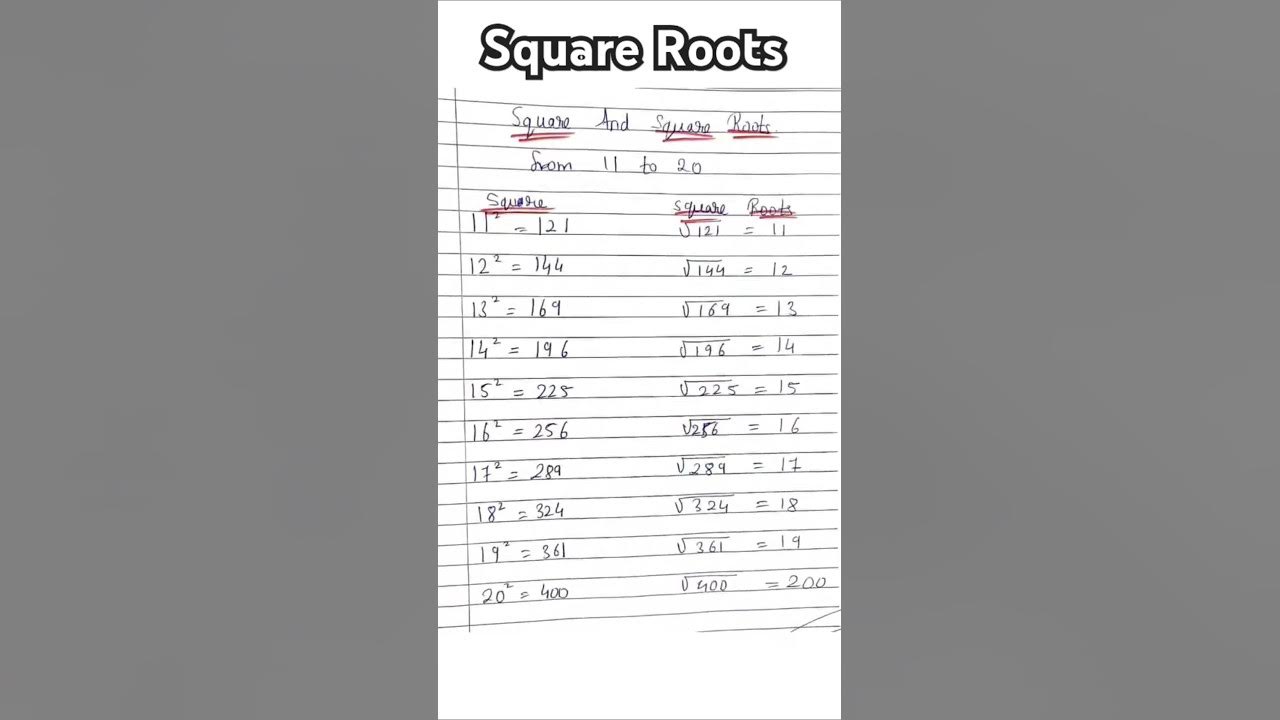 Square Roots
Square And Square Roots
from 11 to 20
Square Square Roots
11² = 121 √121 = 11
12² = 144 √144 = 12
13² = 169 √169 = 13
14² = 196 √196 = 14
15² = 225 √225 = 15
16² = 256 √256 = 16
17² = 289 √289 = 17
18² = 324 √324 = 18
19² = 361 √361 = 19
20² = 400 √400 = 200